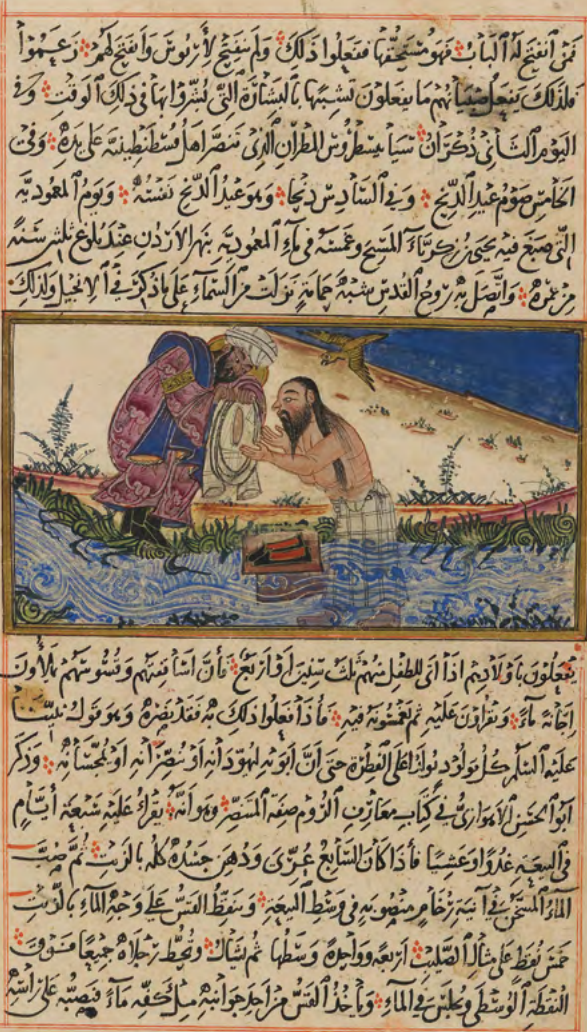 فمن انفتح له الباب فهو مستحقها ففعلوا ذلك ولم ينفتح لأريوس وانفتح لهم وزعموا
فلذلك يفعل صبيانهم ما يفعلون تشبيها بالبشارة التي بشروا بها في ذلك الوقت وفي
اليوم الثاني ذكران المطران الذي تنصر اهل قسطنطينية على يده وفي
الخامس صوم عيد الدنح وفي السادس دنحا وهو عيد الدنح نفسه ويوم المعمودية
التي صبغ فيه يحيى بن زكرياء المسيح وغمسه في ماء المعمودية بنهر الاردن عند بلوغ ثلثين سنة
من عمره واتصل به روح القدس شبه حمامة نزلت من السماء على ما ذكر في الانجيل ولذلك
يفعلون باولادهم اذا اتى للطفل منهم ثلث سنين او اربع فان اساقفتهم وقسوسهم يملأون
اجانة ماء ويقرأون عليه ثم يغمسونه فيه فاذا فعلوا ذلك به فقد نصره وهو قول نبينا
عليه السلام كل مولود يولد على الفطرة حتى ان ابويه يهودانه او ينصرانه او يمجسانه وذكر
ابو الحسين الاهوازي في كتاب معارف الروم صفة المتنصر وهو انه يقرأ عليه سبعة أيام
في البيعة غدوا وعشيا فاذا كان السابع عري ودهن جسده كله بالزيت ثم صب
الماء المسخن في آنية رخام منصوبة في وسط البيعة وينقط القس على وجه الماء بالزيت
خمس نقط على مثال الصليب اربعة وواحدة وسطها ثم يشال وتحط رجلاه جميعا فوق
النقطة الوسطى ويجلس في الماء وياخذ القس من احد جوانبه ملء كفه ماء فيصبه على راسه